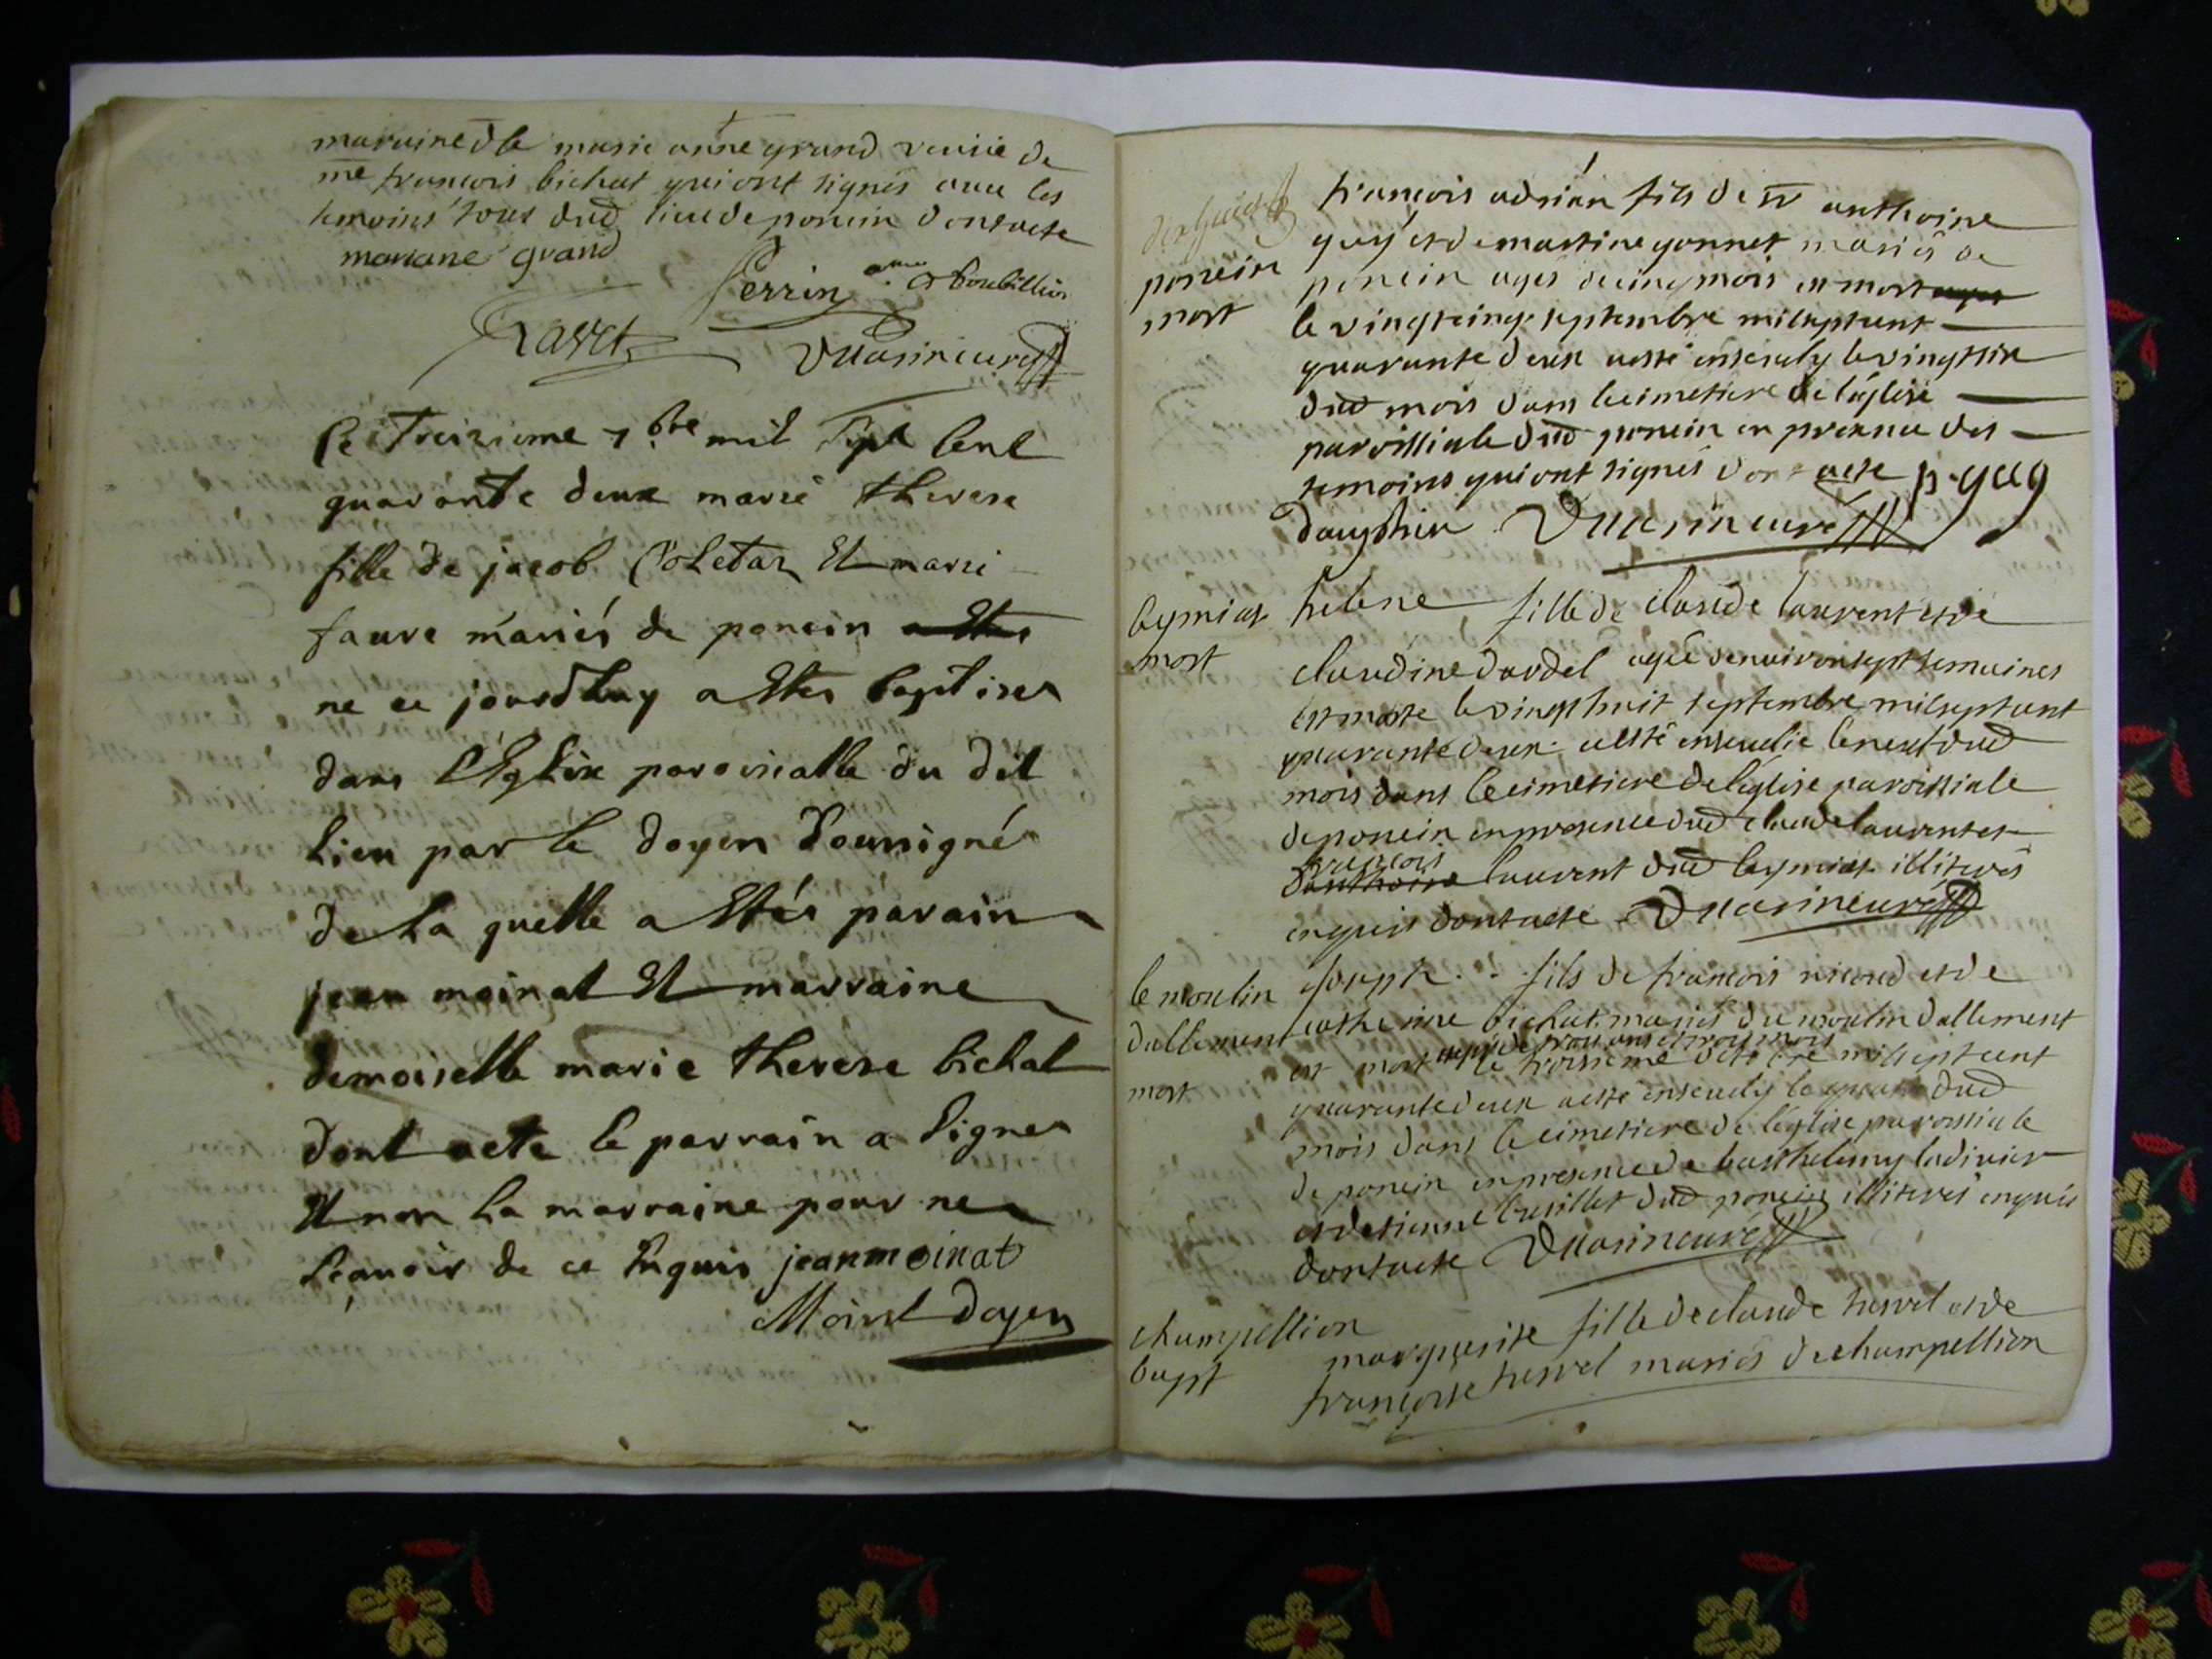 maraine dlle marie anne grand veuve de
me francois bichat qui ont signés avec les
temoins tous dud lieu de poncin dont acte
mariane grand
Perrin
Ravet
Duasin curé
Le Treizieme 7.bre mil Sept Cent
quarante deux marie therese
fille de jacob Coletar Et marie
faure mariés de poncin
ne ce jourdhuy a Eter baptiser
dans L'Eglise paroissialle du dit
Lieu par le doyen Soussignér
de La quelle a Etér parain
jean moinat Et marraine
demoiselle marie therese bichat
dont acte le parrain a Signer
Et non La marraine pour ne
Sçavoir de ce Enquis jean moinat
Moinat Doyen
francois adrian fils de sr anthoine
guy et de martine gonnet mariés de
poncin
mort
poncin agés de cinq mois est mort
le vingtcinq septembre milsept cent
quarante deux a esté ensevely le vingtsix
dud mois dans le cimetiere de l'église
paroissiale dud poncin en presence des
temoins qui ont signés dont acte p. guy
dauphin Duasin curé
leymiat
mort
helene fille de claude laurent et de
claudine dardel agée denviron sept semaines
est morte le vingt huit septembre milsept cent
quarante deux a esté ensevelie le neuf dud
mois dans le cimetiere de l'eglise paroissiale
de poncin en presence dud claude laurent et
francois
laurent dud leymiat illiterés
enquis dont acte Duasin curé
le moulin
dallement
mort
joseph fils de francois nicoud et de
catherine bichat mariés du moulin dallement
agé de trois ans et trois mois
est mort le troisieme octobre milsept cent
quarante deux a esté ensevely le quatre dud
mois dans le cimetiere de l'église paroissiale
de poncin en presence de barthelemy ladivier
et detienne brusillet dud poncin illiterés enquis
dont acte Duasin curé
champellion
bapt
marguerite fille de claude tresvel et de
francoise tresvel mariés de champellion